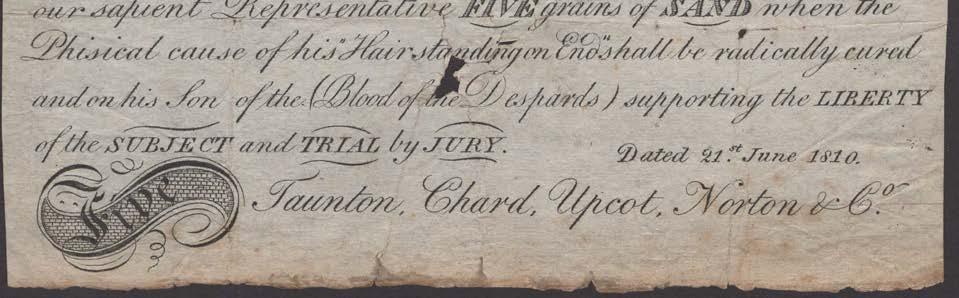 our sapient Representative FIVE grains of SAND when the
Phisical cause of his "Hair standing on End" shall be radically cured
and on his Son of the (Blood of the Despards) supporting the LIBERTY
of the SUBJECT and TRIAL by JURY.
Dated 21.st June 1810.
Five
Taunton, Chard, Upcot, Norton & Co.